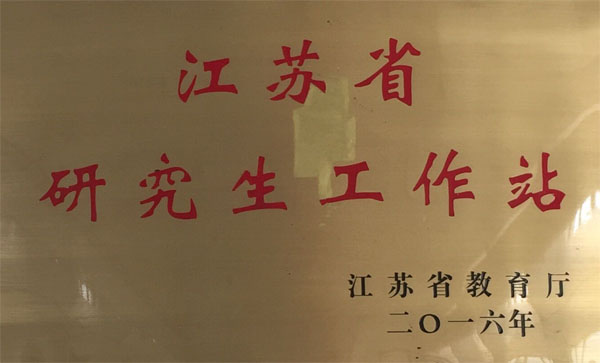 江苏省
研究生工作站
江苏省教育厅
二〇一六年